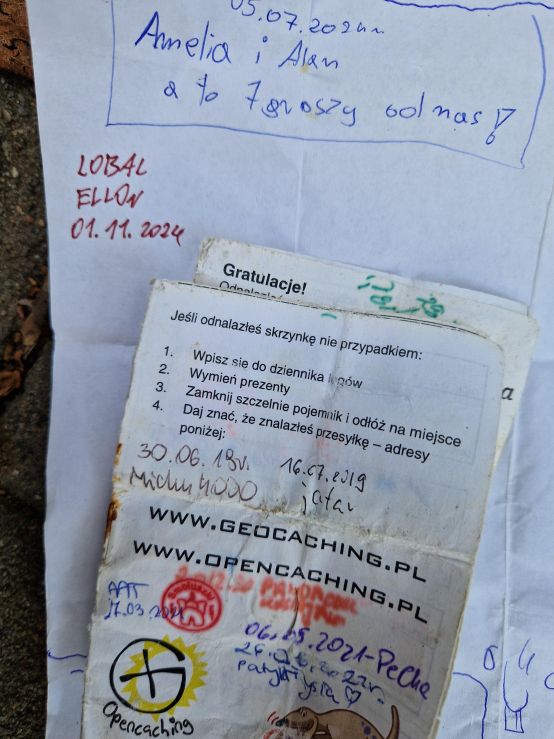 05.07.2024r.
Amelia i Alan
a to 7 groszy od nas!
LOBAL
ELLON
01.11.2024
Gratulacje!
Jeśli odnalazłeś skrzynkę nie przypadkiem:
1. Wpisz się do dziennika logów
2. Wymień prezenty
3. Zamknij szczelnie pojemnik i odłóż na miejsce
4. Daj znać, że znalazłeś przesyłkę – adresy
poniżej:
30.06.19r. 16.07.2019
Michu4000 jatar
WWW.GEOCACHING.PL
WWW.OPENCACHING.PL
06.05.2021-Pecha
Opencaching